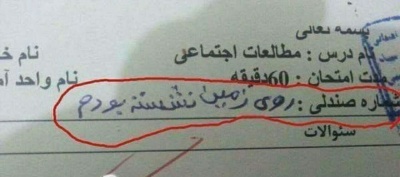 بسمه تعالی
نام درس : مطالعات اجتماعی
نام
مدت امتحان : 60دقیقه
نام واحد
شماره صندلی : روی زمین نشسته بودم
سئوالات